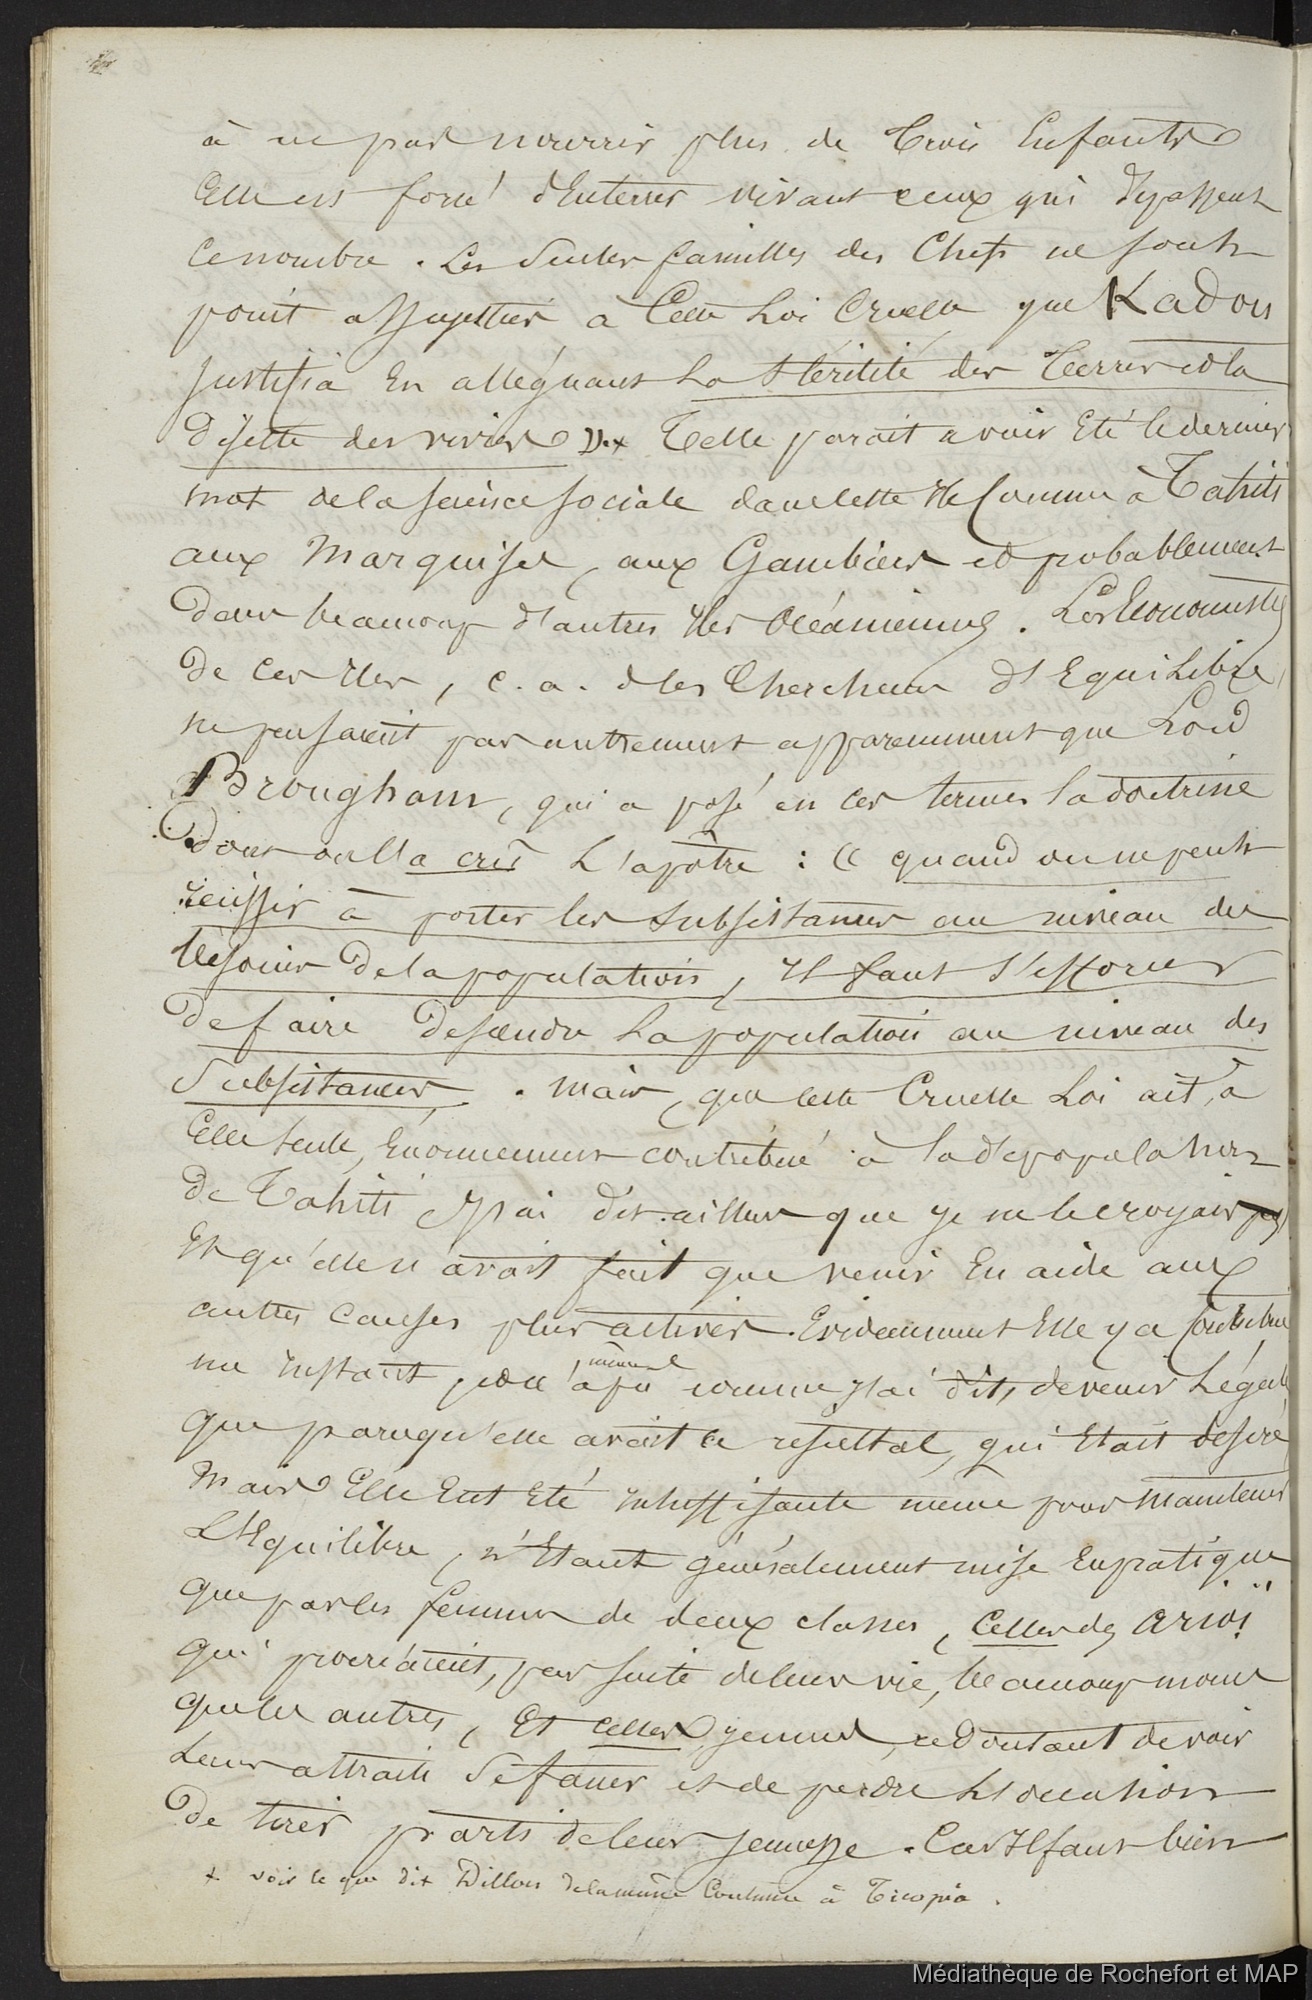 à ne pas nourrir plus de trois Enfants
Elle est forcé d'Enterrer vivant ceux qui dépassent
ce nombre. Les Seules familles des Chefs ne sont
point assujetties à Cette Loi Cruelle que Kadou
justifia En alléguant La Stérilité des terres et la
disette des vivres » + Telle parait avoir Eté le dernier
mot de la science sociale dans cette Ile Comme à Tahiti
aux Marquises, aux Gambiers et probablement
dans beaucoup d'autres Iles Océaniennes. Les Economistes
de ces Iles, c. a. d les Chercheurs d'Equilibre,
ne pensaient pas autrement apparemment que Lord
Brougham, qui a posé en ces termes la doctrine
dont on l'a crû L'apôtre : « quand on ne peut
réussir à porter les subsistances au niveau des
besoins de la population, il faut s'efforcer
de faire descendre La population au niveau des
Subsistances. Mais, que cette Cruelle Loi ait, à
Elle seule, Enormement contribué à la dépopulation
de Tahiti J'ai dit ailleurs que je ne le croyais pas
Et qu'elle n'avait fait que venir En aide aux
autres causes plus actives. Evidemment Elle y a contribué
un instant, puisqu' même
a pu comme J'ai dit, devenir Légale
que parcequ'elle avait ce resultat, qui Etait desiré
Mais Elle Eut Eté insuffisante même pour Maintenir
L'Equilibre, n'Etant généralement mise En pratique
que par les femmes de deux classes, Celles des Arioï
qui procréaient, par suite de leur vie, beaucoup moins
que les autres, Et celles jeunes, redoutant de voir
Leurs attraits Se faner et de perdre L'occasion
de tirer parti de leur jeunesse. Car Il faut bien
+ voir ce que dit Dillon de la même Coutume à Ticopia.
Médiathèque de Rochefort et MAP